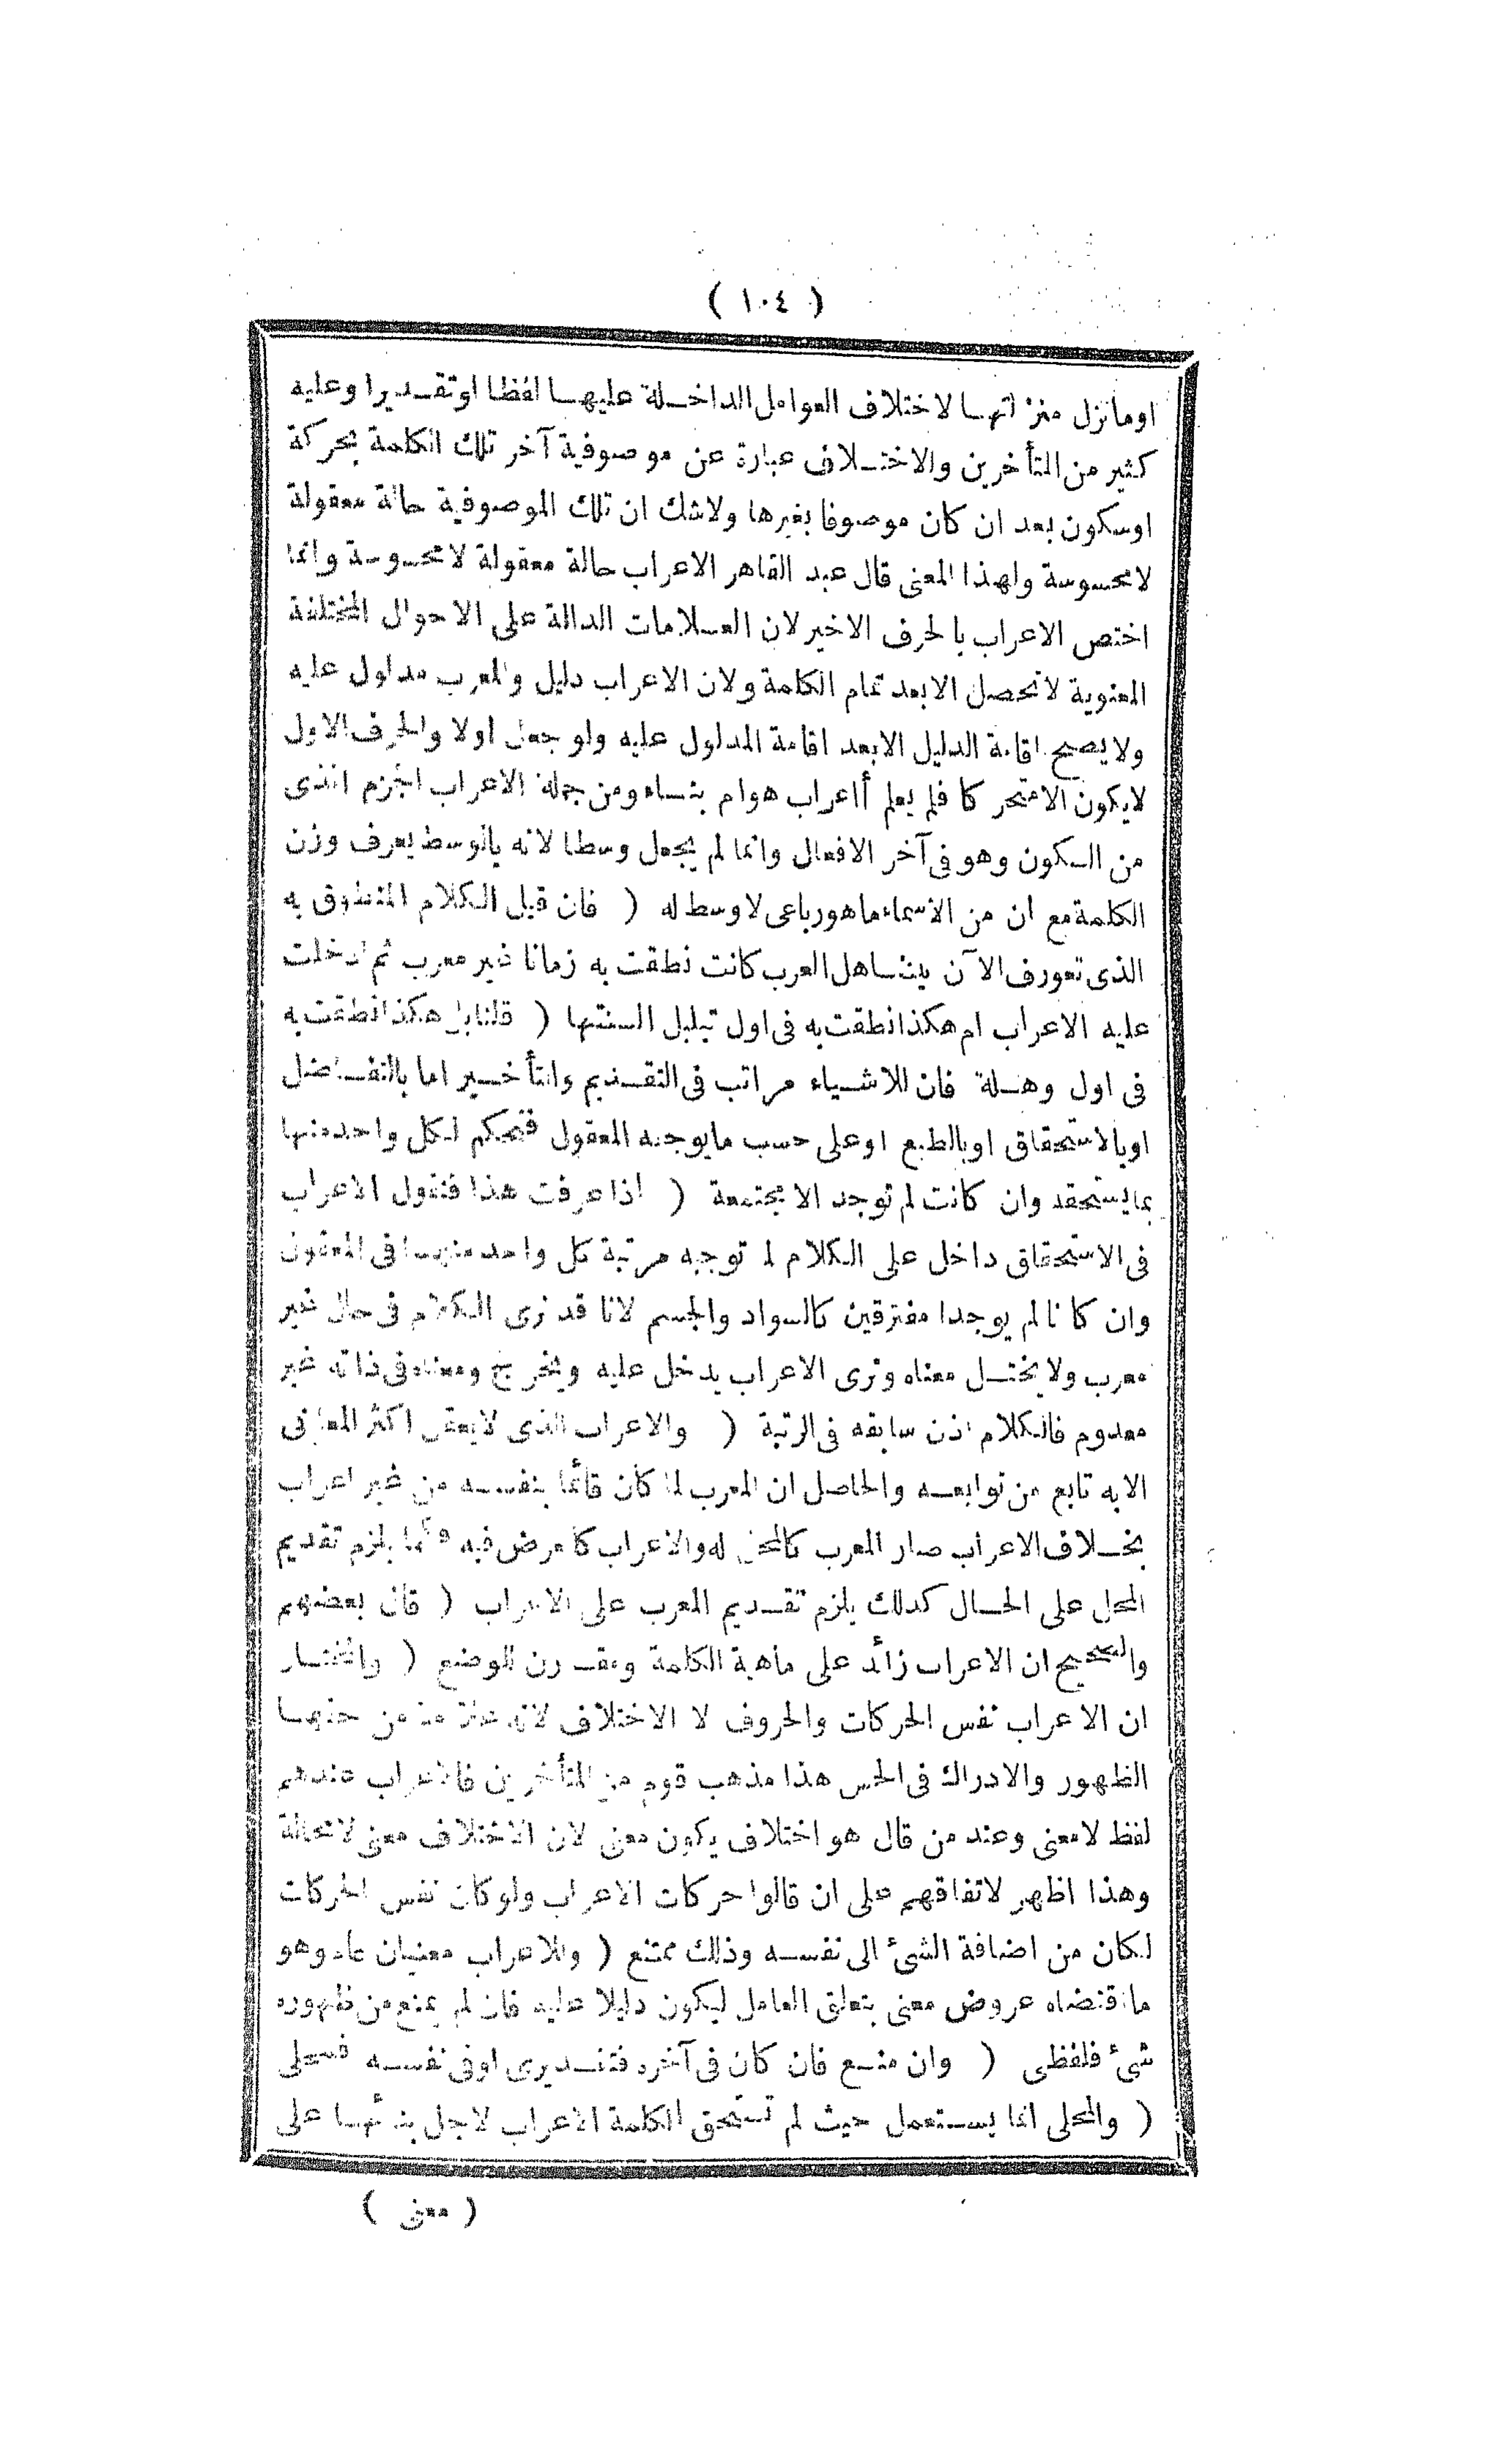 ( ١٠٤ )
اوما نزل منزلتها لاختلاف العوامل الداخلة عليها لفظا اوتقديرا وعليه
كثير من المتأخرين والاختلاف عبارة عن موصوفية آخر تلك الكلمة بحركة
اوسكون بعد ان كان موصوفا بغيرها ولاشك ان تلك الموصوفية حالة معقولة
لامحسوسة ولهذا المعنى قال عبد القاهر الاعراب حالة معقولة لامحسوسة وانما
اختص الاعراب بالحرف الاخير لان العلامات الدالة على الاحوال المختلفة
المعنوية لاتحصل الابعد تمام الكلمة ولان الاعراب دليل والمعرب مدلول عليه
ولا يصح اقامة الدليل الابعد اقامة المدلول عليه ولو جعل اولا والحرف الاول
لايكون الامتحركا فلم يعلم أاعراب هوام بناء ومن جملة الاعراب الجزم الذى
من السكون وهو فى آخر الافعال وانما لم يجعل وسطا لانه بالوسط يعرف وزن
الكلمة مع ان من الاسماء ماهو رباعى لا وسط له ( فان قيل الكلام المنطوق به
الذى تعورف الآن بيننا هل العرب كانت نطقت به زمانا غير معرب ثم ادخلت
عليه الاعراب ام هكذا نطقت به فى اول تبلبل السنتها ( قلنا بل هكذا نطقت به
فى اول وهلة فان للاشياء مراتب فى التقديم والتأخير اما بالتفاضل
او بالاستحقاق او بالطبع او على حسب مايوجبه المعقول فتحكم لكل واحد منها
بما يستحقه وان كانت لم توجد الا مجتمعة ( اذا عرفت هذا فنقول الاعراب
فى الاستحقاق داخل على الكلام لما توجبه مرتبة كل واحد منهما فى المعقول
وان كانا لم يوجدا مفترقين كالسواد والجسم لانا قد نرى الكلام فى حال غير
معرب ولا يختل معناه ونرى الاعراب يدخل عليه ويخرج ومعناه فى ذاته غير
معدوم فالكلام اذن سابقه فى الرتبة ( والاعراب الذى لايعقل اكثر المعانى
الابه تابع من توابعه والحاصل ان المعرب لما كان قائما بنفسه من غير اعراب
بخلاف الاعراب صار المعرب كالمحل له والاعراب كالعرض فيه فكما يلزم تقديم
المحل على الحال كذلك يلزم تقديم المعرب على الاعراب ( قال بعضهم
والصحيح ان الاعراب زائد على ماهية الكلمة ومقارن للوضع ( والمختار
ان الاعراب نفس الحركات والحروف لا الاختلاف لانه علامة من حقها
الظهور والادراك فى الحس هذا مذهب قوم من المتأخرين فالاعراب عندهم
لفظ لامعنى وعند من قال هو اختلاف يكون معنى لان الاختلاف معنى لامحالة
وهذا اظهر لاتفاقهم على ان قالوا حركات الاعراب ولوكان نفس الحركات
لكان من اضافة الشئ الى نفسه وذلك ممتنع ( وللاعراب معنيان عام وهو
ما اقتضاه عروض معنى بتعلق العامل ليكون دليلا عليه فان لم يمنع من ظهوره
شئ فلفظى ( وان منع فان كان فى آخره فتقديرى اوفى نفسه فمحلى
( والمحلى انما يستعمل حيث لم تستحق الكلمة الاعراب لاجل بنائها على
( معنى )